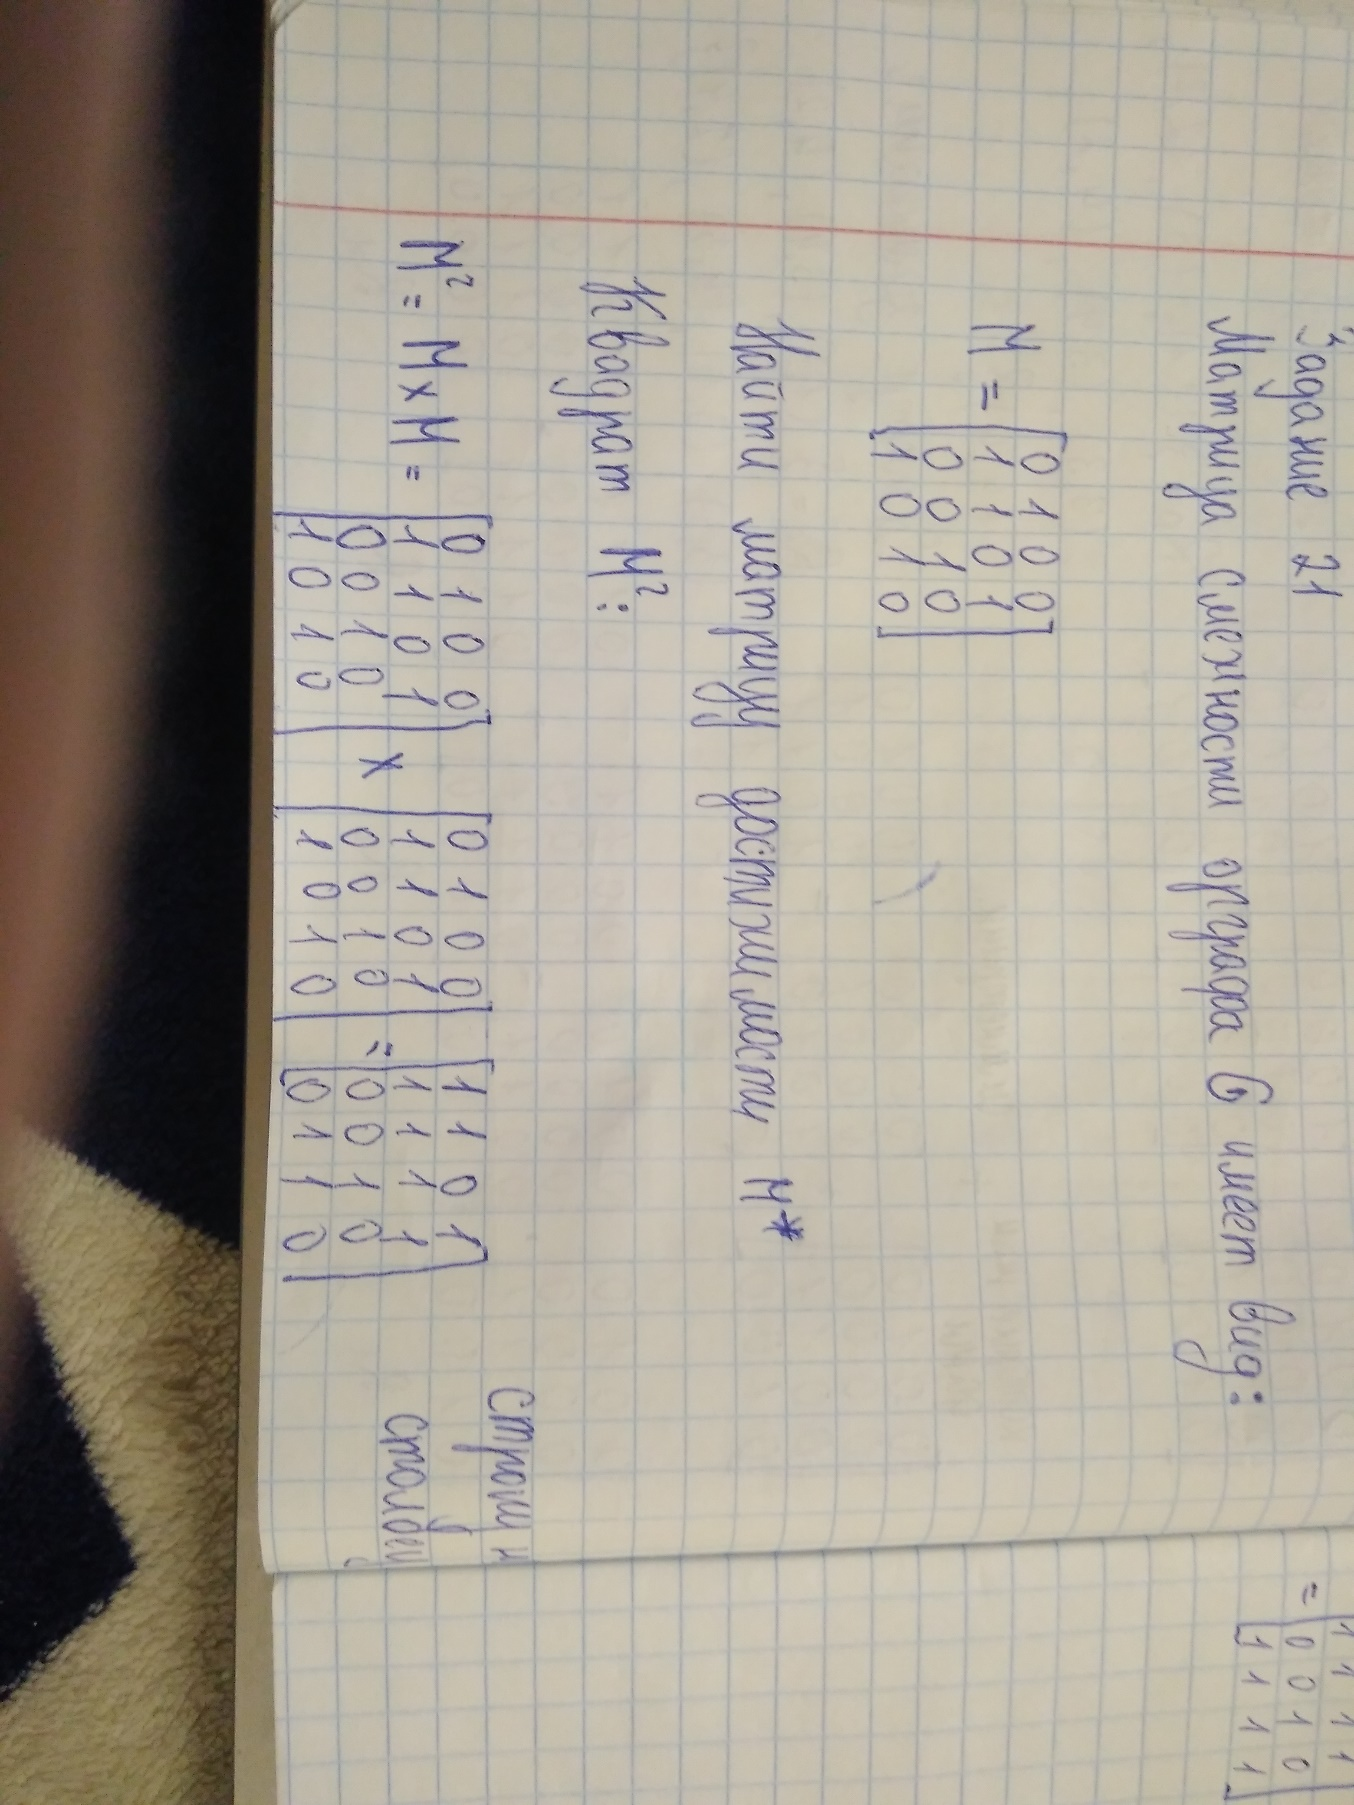 Задание 21
Матрица смежности орграфа G имеет вид:
M =
0 1 0 0
1 1 0 1
0 0 1 0
1 0 1 0
Найти матрицу достижимости M*
Квадрат M²:
M² = M × M =
0 1 0 0
1 1 0 1
0 0 1 0
1 0 1 0
×
0 1 0 0
1 1 0 1
0 0 1 0
1 0 1 0
=
1 1 0 1
1 1 1 1
0 0 1 0
0 1 1 0
строку н
столбец
=
1 1 1 1
0 0 1 0
1 1 1 1